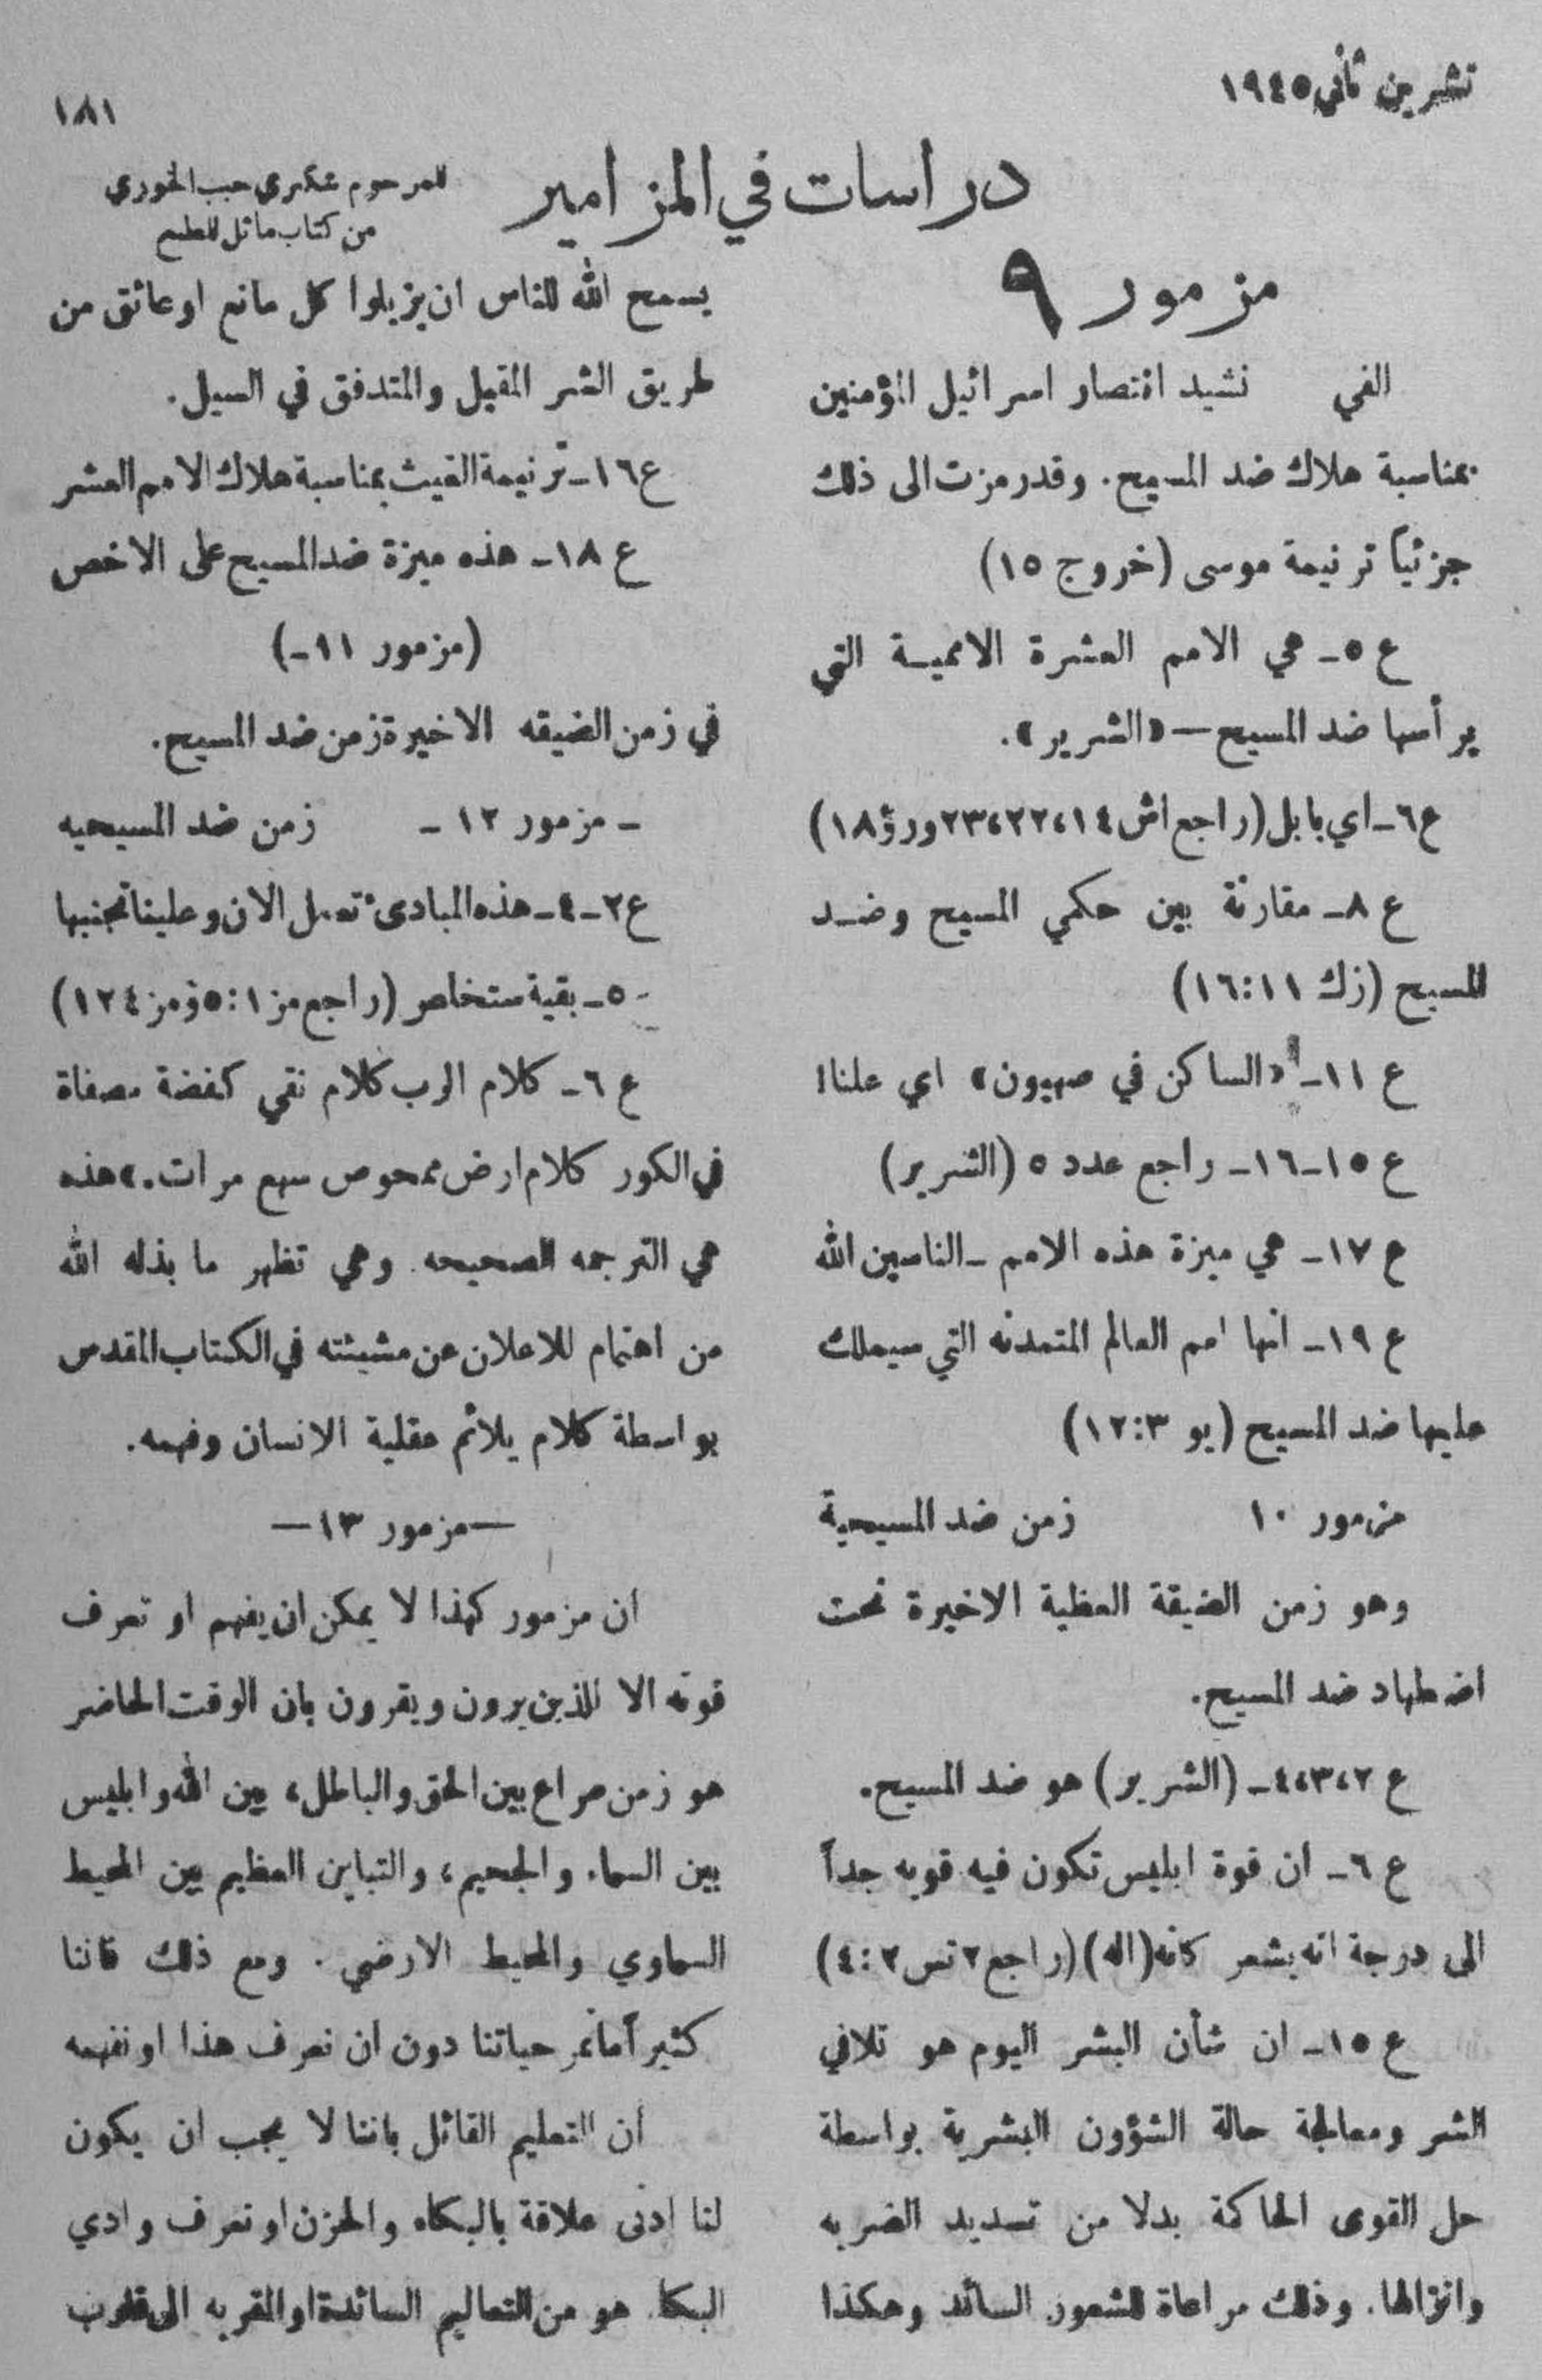 تشرين ثاني ١٩٤٥
١٨١
دراسات في المزامير
للمرحوم شكري حبيب الخوري
من كتاب ماثل للطبع
مزمور ٩
الفي نشيد انتصار اسرائيل المؤمنين
بمناسبة هلاك ضد المسيح. وقد رمزت الى ذلك
جزئياً ترنيمة موسى (خروج ١٥)
ع ٥ـ هي الامم العشرة الاممية التي
يرأسها ضد المسيح — «الشرير».
ع٦ـ اي بابل (راجع اش ١٤،٢٢،٢٣ ورؤ١٨)
ع ٨ـ مقارنة بين حكمي المسيح وضد
المسيح (زك ١١:١٦)
ع ١١ـ «الساكن في صهيون» اي علنا!
ع ١٥ـ١٦ـ راجع عدد ٥ (الشرير)
ع ١٧ـ هي ميزة هذه الامم ـ الناسين الله
ع ١٩ـ انها امم العالم المتمدنه التي سيملك
عليها ضد المسيح (يو ٣:١٢)
مزمور ١٠ زمن ضد المسيحية
وهو زمن الضيقة العظية الاخيرة تحت
اضطهاد ضد المسيح.
ع ٢،٣،٤ـ (الشرير) هو ضد المسيح.
ع ٦ـ ان قوة ابليس تكون فيه قويه جداً
الى درجة انه يشعر كانه (اله) (راجع ٢ تس ٢:٤)
ع ١٥ـ ان شأن البشر اليوم هو تلافي
الشر ومعالجة حالة الشؤون البشرية بواسطة
حل القوى الحاكمة بدلا من تسديد الضربه
وانزالها. وذلك مراعاة للشعور السائد وهكذا
يسمح الله للناس ان يزيلوا كل مانع او عائق من
طريق الشر المقبل والمتدفق في السيل.
ع١٦ـ ترنيمة الغيث بمناسبة هلاك الامم العشر
ع ١٨ـ هذه ميزة ضد المسيح على الاخص
(مزمور ١١ـ)
في زمن الضيقه الاخيرة زمن ضد المسيح.
ـ مزمور ١٢ ـ زمن ضد المسيحيه
ع٢ـ٤ـ هذه المبادئ تعمل الان وعلينا تجنبها
ـ ٥ـ بقية ستخلص (راجع مز ١:٥ ومز ١٢٤)
ع ٦ـ كلام الرب كلام نقي كفضة مصفاة
في الكور كلام ارض ممحوص سبع مرات.» هذه
هي الترجمه الصحيحه. وهي تظهر ما بذله الله
من اهتمام للاعلان عن مشيئته في الكتاب المقدس
بواسطة كلام يلائم عقلية الانسان وفهمه.
— مزمور ١٣ —
ان مزمور كهذا لا يمكن ان يفهم او تعرف
قوته الا للذين يرون ويقرون بان الوقت الحاضر
هو زمن صراع بين الحق والباطل، بين الله وابليس
بين السماء والجحيم، والتباين العظيم بين المحيط
السماوي والمحيط الارضي. ومع ذلك فاننا
كثيراً ما تمر حياتنا دون ان نعرف هذا او نفهمه
ان التعليم القائل باننا لا يجب ان يكون
لنا ادنى علاقة بالبكاء والحزن او نعرف وادي
البكا. هو من التعاليم السائدة او المقربه الى قلوب